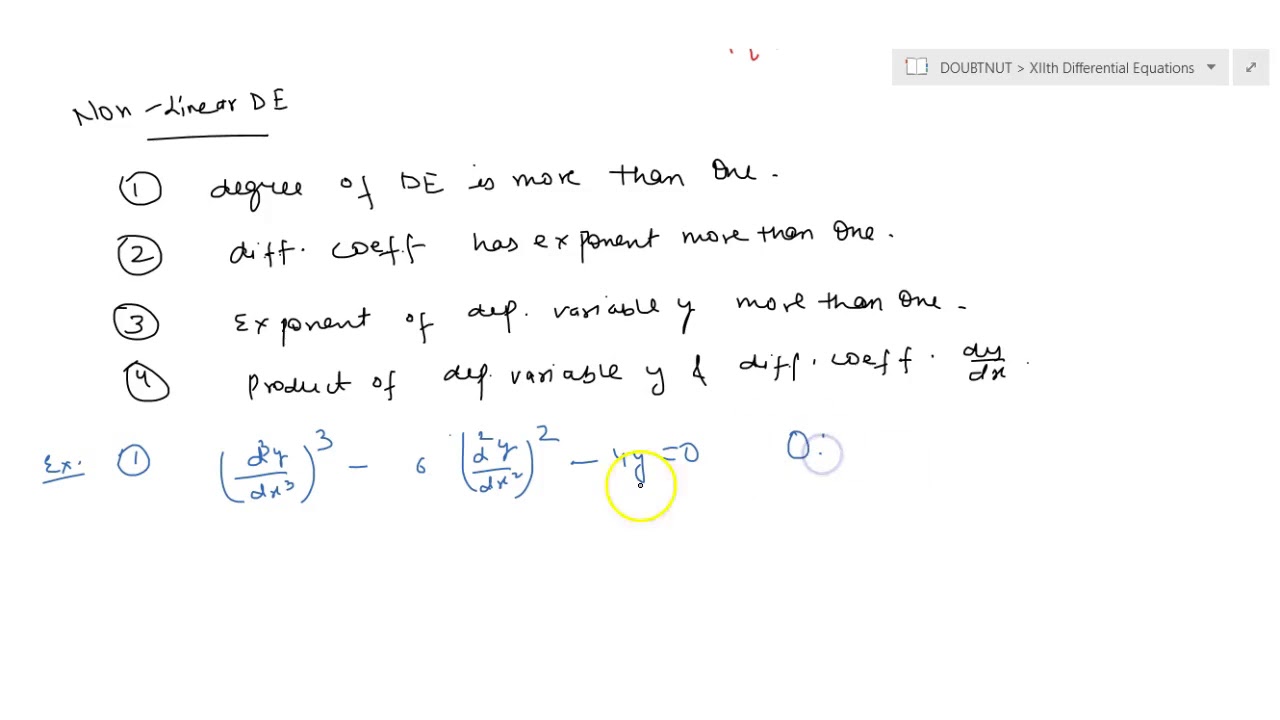 DOUBTNUT > XIIth Differential Equations
Non-Linear DE
① degree of DE is more than One.
② diff. coeff has exponent more than One.
③ Exponent of dep. variable y more than One.
④ Product of dep. variable y & diff. coeff. dy/dx.
Ex. ① (d³y/dx³)³ - 6 (d²y/dx²)² - 4y = 0 O: